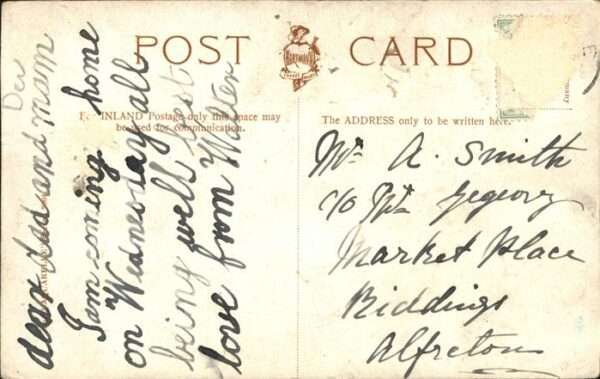 POST CARD
HARTMANN
FOR INLAND Postage only this space may
be used for communication.
The ADDRESS only to be written here.
dear dad and mam
I am coming home
on Wednesday all
being well best
love from Walter
Mr A. Smith
c/o Mr Gregory
Market Place
Riddings
Alfreton